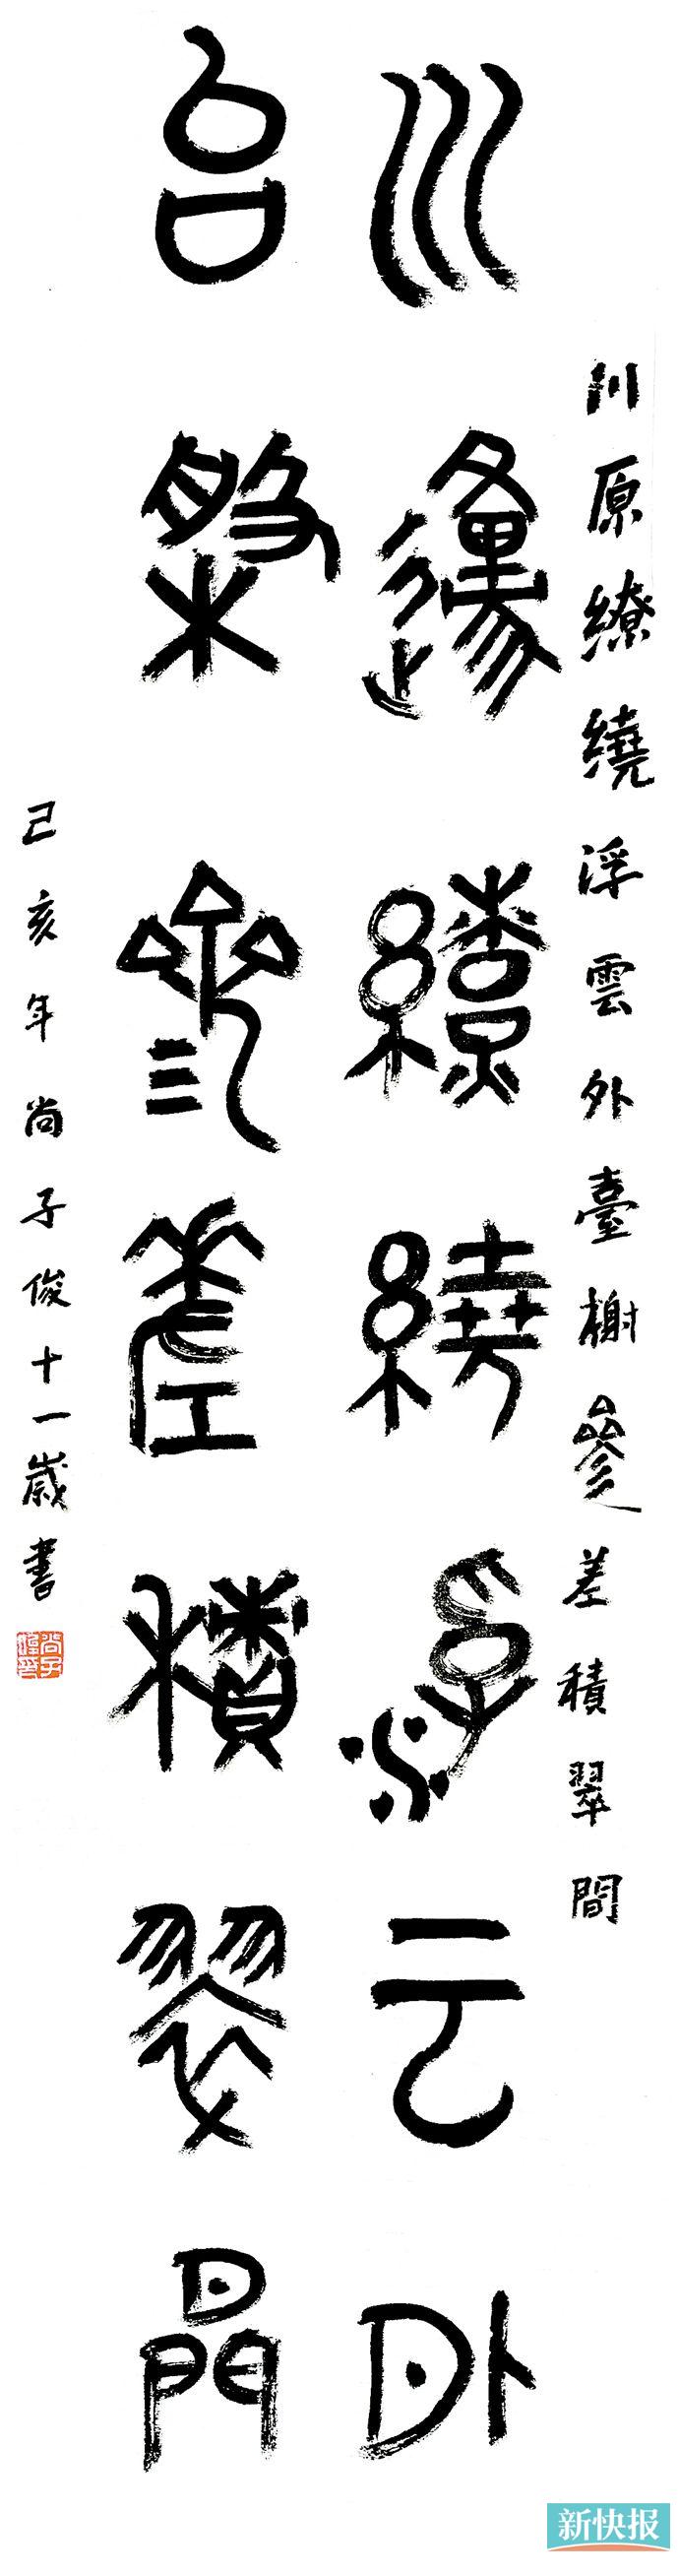 川原繚繞浮雲外臺榭參差積翠間
川邍繚繞浮云外
台榭參差積翠閒
己亥年尚子俊十一歲書
新快报